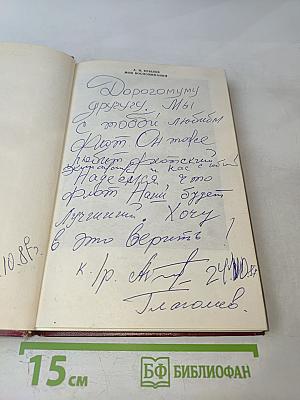 А. Н. КРЫЛОВ
МОИ ВОСПОМИНАНИЯ
Дорогомуму
другугу! Мы
с тобой любим
флот. Он тоже
любит флотский
и нас с тобой!
Надеемся, что
флот Наш будет
Лучшим. Хочу
в это верить!
к. /р.
24.
10.89г.
Глаголев.
15 см
БФ БИБЛИОФАН